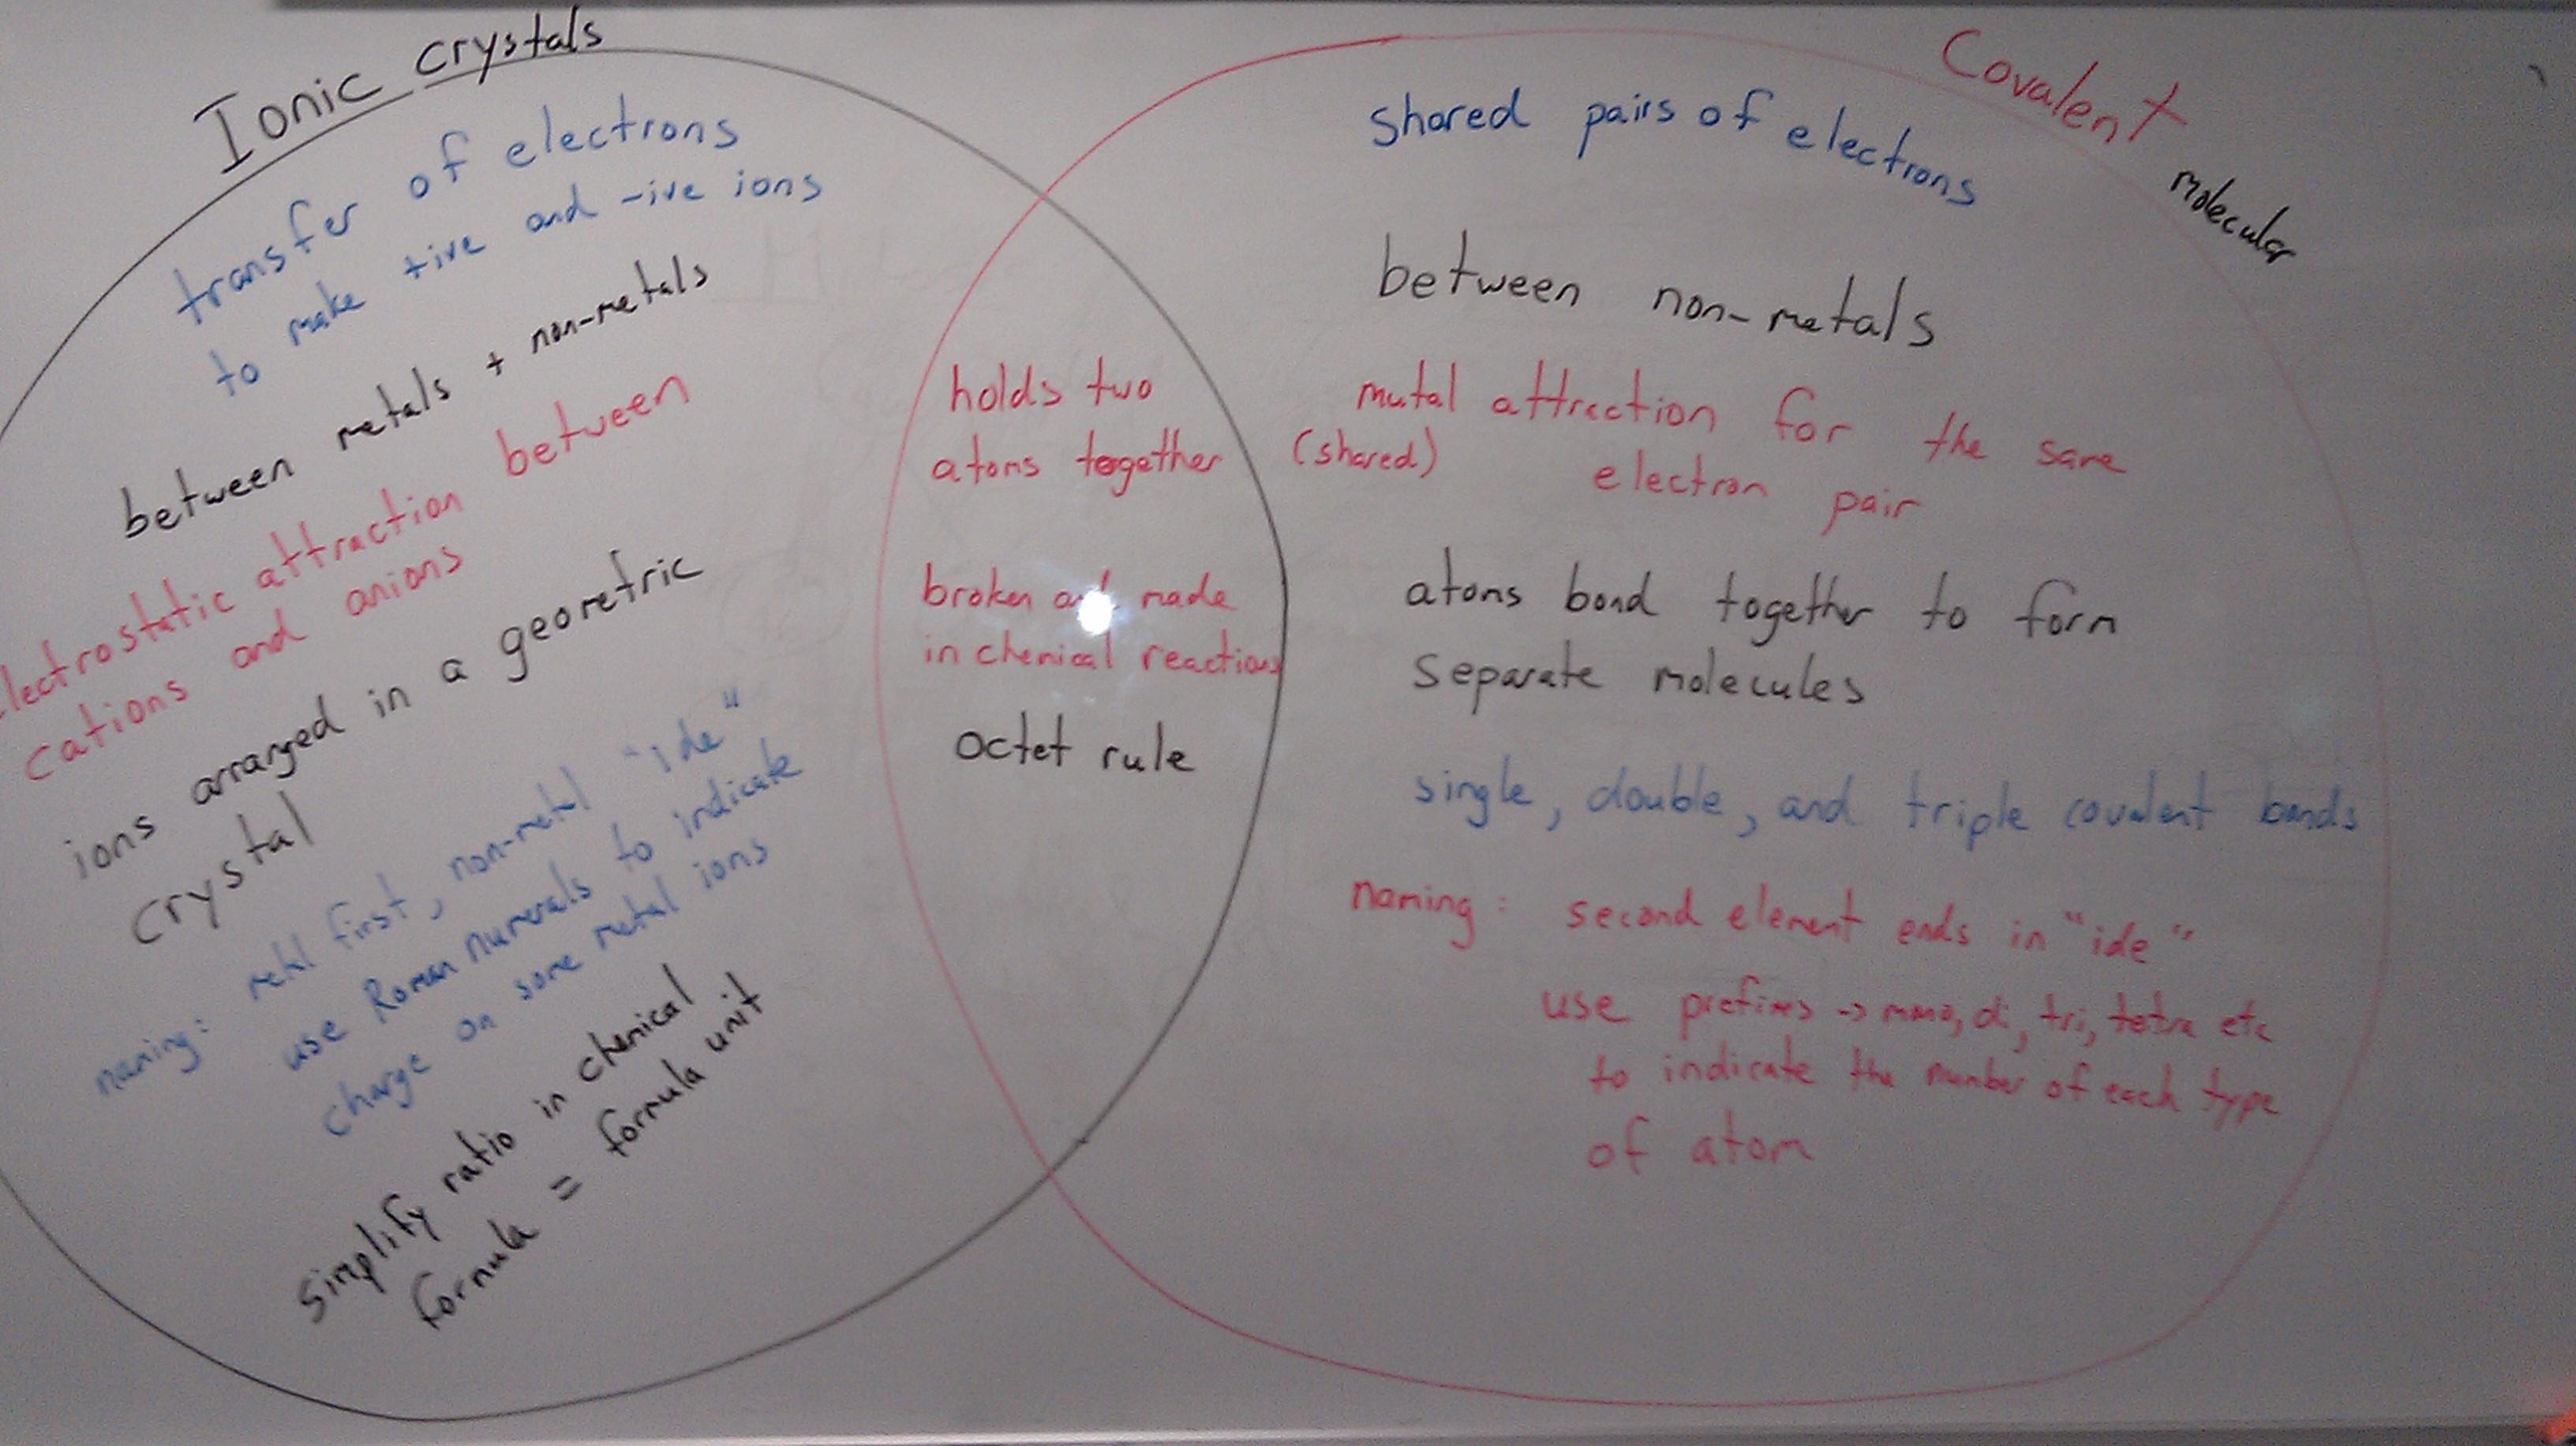 Ionic crystals
transfer of electrons
to make +ive and -ive ions
between metals + non-metals
lectrostatic attraction between
cations and anions
ions arranged in a geometric
crystal
naming: metal first, non-metal "ide"
use Roman numerals to indicate
charge on some metal ions
simplify ratio in chemical
formula = formula unit
holds two
atoms together
broken and made
in chemical reactions
octet rule
Covalent
molecular
shared pairs of electrons
between non-metals
mutal attraction for the same
(shared) electron pair
atoms bond together to form
separate molecules
single, double, and triple covalent bonds
naming: second element ends in "ide"
use prefixes -> mono, di, tri, tetra etc
to indicate the number of each type
of atom